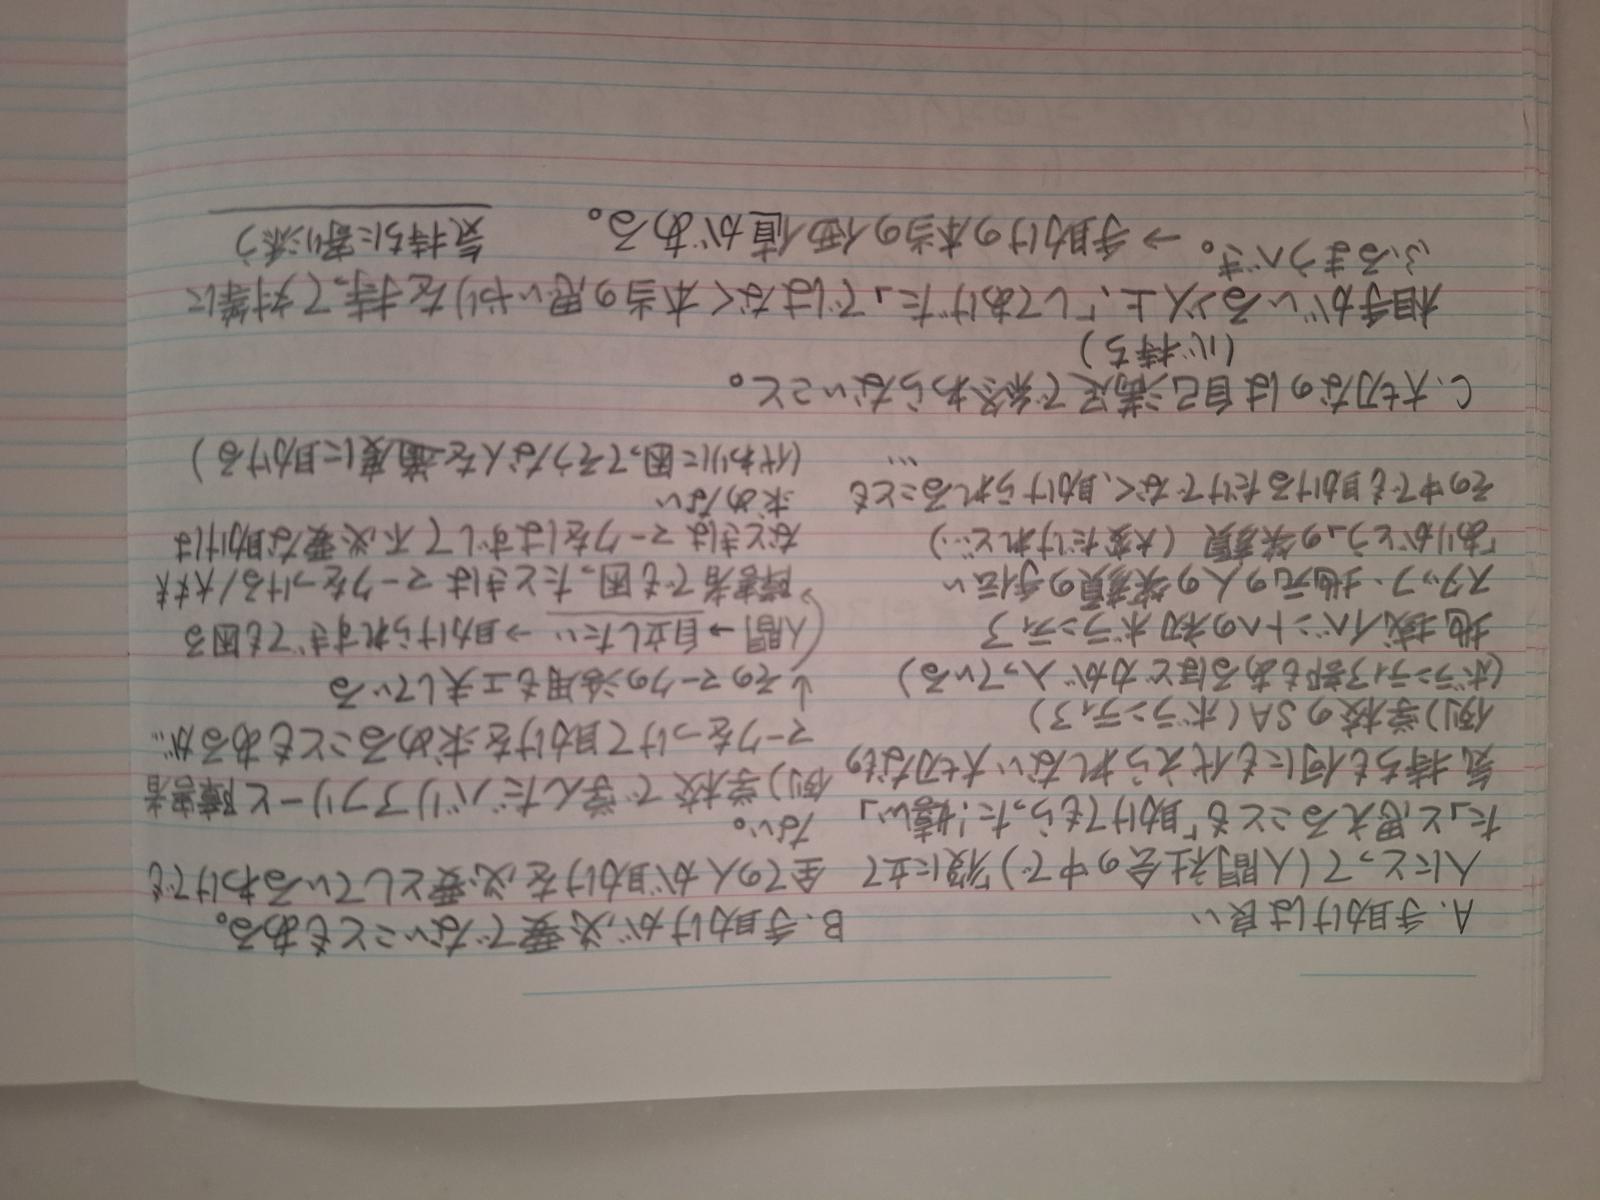 A. 手助けは良い
人にとって(人間社会の中で)「役に立て
た」と思えることも「助けてもらった!嬉しい」
気持ちも何にも代えられない大切なもの
例)学校のSA(ボランティア)
(ボランティア部もあるほど力が入っている)
地域イベントへの初ボランティア
スタッフ、地元の人の笑顔の手伝い
「ありがとう」の笑顔(大変だけれど…)
その中でも助けるだけでなく、助けられることも
…
B. 手助けが必要でないこともある。
全ての人が助けを必要としているわけでも
ない。
例)学校で学んだバリアフリーと障害者
マークをつけて助けを求めることもあるが…
↓そのマークの活用も工夫している
人間→自立したい→助けられすぎても困る
障害者でも困ったときはマークをつける/大丈夫
なときはマークをはずして不必要な助けは
求めない
(代わりに困ってそうな人を適度に助ける)
C. 大切なのは自己満足で終わらないこと。
(心持ち)
相手がいる以上、「してあげた」ではなく本当の思いやりを持って対等に
ふるまうべき。→手助けの本当の価値がある。
気持ちに寄り添う